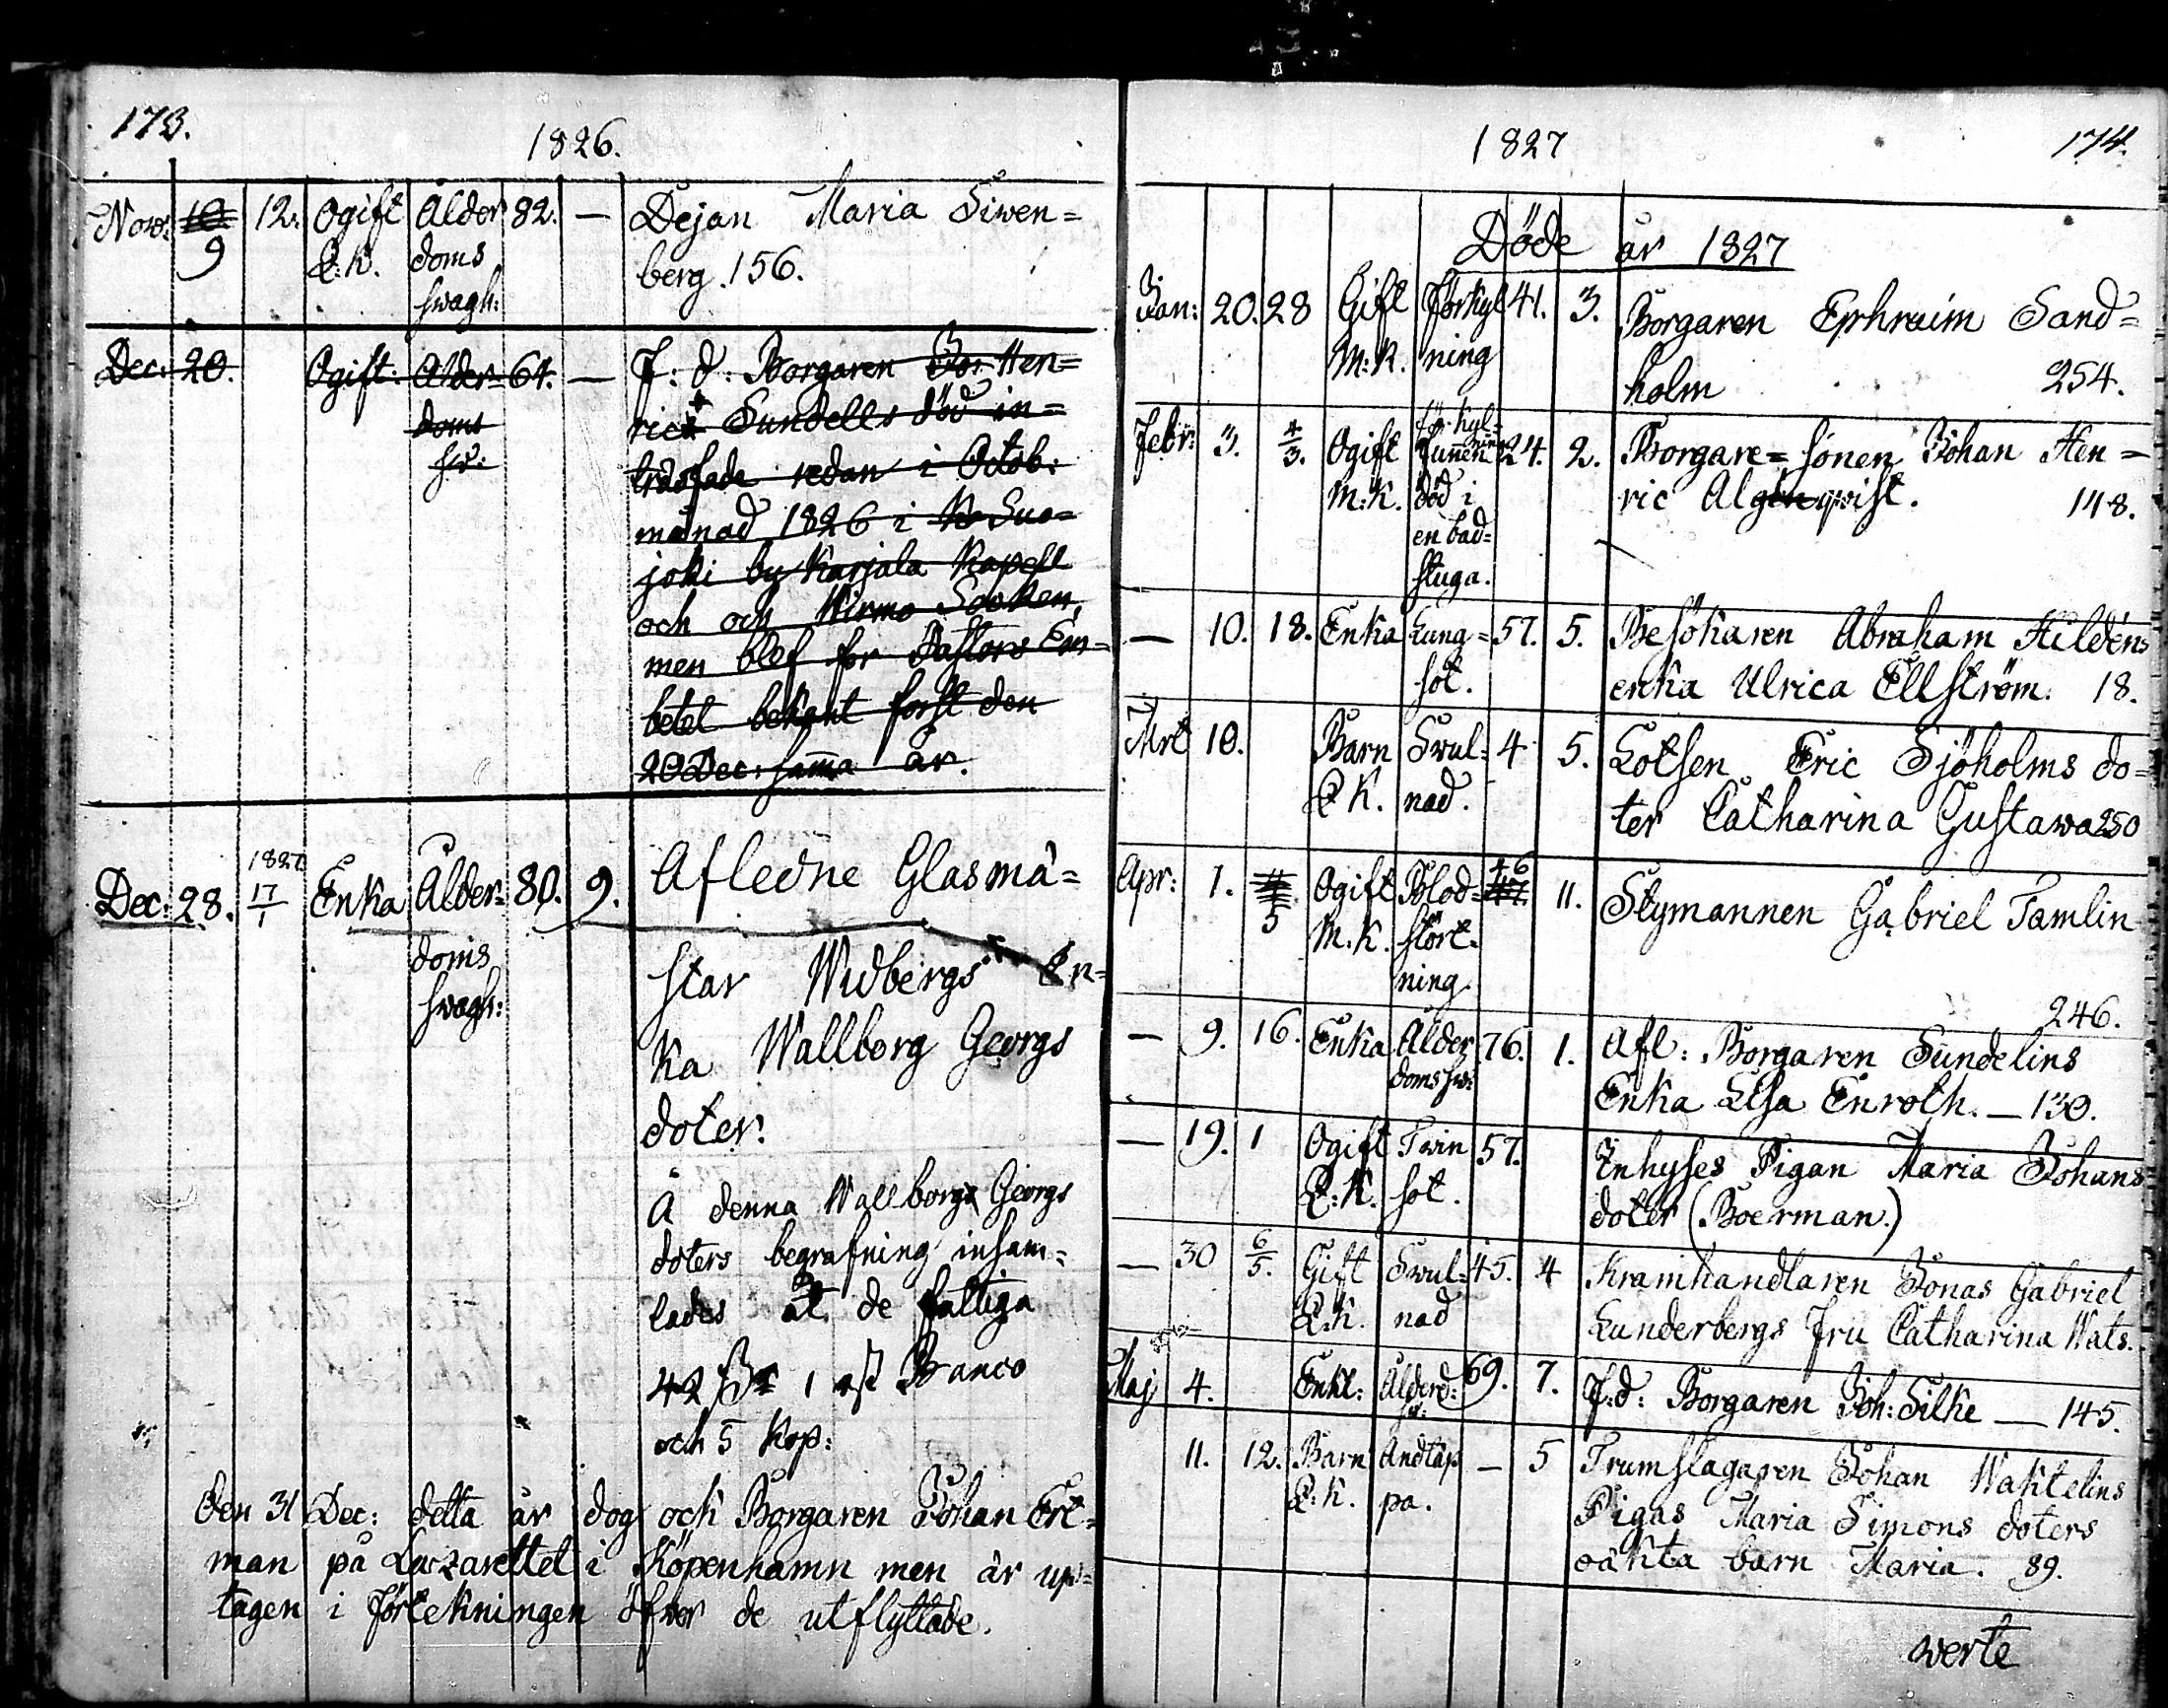 173.
1826.
Nov: 10 9 12. Ogift Ålder 82. — Dejan Maria Siwen=
Q:K. doms berg. 156.
swagh:
Dec: 20. Ogift: Ålder= 64. — F: d: Borgaren Hen=
doms rics Sundells död in=
sw: träffade redan i Octob:
månad 1826 i Suo=
joki by Karjala Kapell
och och Wirmo Socken,
men blef för Pastors Em=
betet bekant först den
20 Dec: sam̄a år.
1827
Dec: 28. 17/1 Enka Ålder= 80. 9. Afledne Glasmä=
doms star Widbergs En=
swagh: ka Wallborg Georgs
doter.
Å denna Wallborgs Georgs
doters begrafning insam=
lades åt de fattiga
42 1 Banco
och 5 Kop:
Den 31 Dec: detta år dog och Borgaren Johan Ert=
man på Lazarettet i Köpenhamn men är up=
tagen i förtekningen öfwer de utflyttade.
1827
174.
Döde år 1827
Jan: 20. 28 Gift Förkyl 41. 3. Borgaren Ephraim Sand=
M:K. ning holm 254.
Febr: 3. 4/3. Ogift förkyl= ning funnen 24. 2. Borgare=sonen Johan Hen=
M:K. död i ric Algrenqwist. 148.
en bad=
stuga.
— 10. 18. Enka Lung= 57. 5. Besökaren Abraham Hildéns
sot. enka Ulrica Ellström. 18.
Mrt 10. Barn Swul= 4 5. Lotsen Eric Sjöholms do=
Q K. nad. ter Catharina Gustawa 250
Apr: 1. 5 Ogift Blod= 47 46 11. Stymannen Gabriel Tamlin
M.K. stört= 246.
ning
— 9. 16. Enka Ålder 76. 1. Afl: Borgaren Sundelins
doms sw: Enka Elsa Enroth. — 130.
— 19. 1 Ogift Twin 57. Inhyses Pigan Maria Johans
Q:K. sot. doter (Boerman.)
— 30 6/5. Gift Swul= 45. 4 Kramhandlaren Jonas Gabriel
Q:K. nad Lunderbergs fru Catharina Wats.
Maj 4. Enkl: Ålderd: sw: 69. 7. F:d: Borgaren Joh: Silke — 145.
11. 12. Barn Andtäp — 5 Trumslagaren Johan Waktelins
Q:K. pa. Pigas Maria Simons doters
oäkta barn Maria. 89.
werte